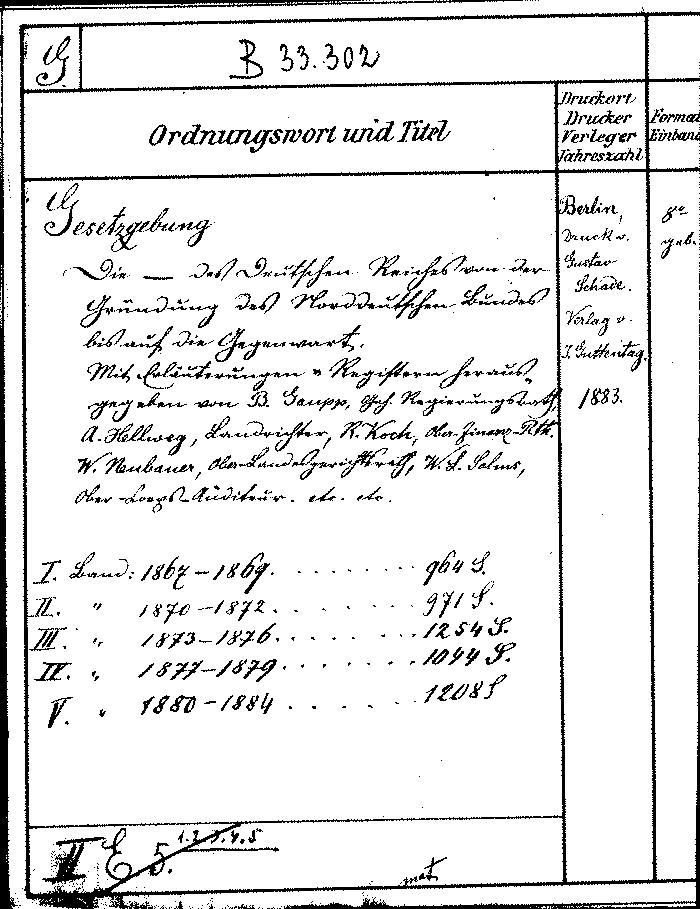 G
B 33.302
Ordnungswort und Titel
Druckort
Drucker
Verleger
Jahreszahl
Format
Einband
Gesetzgebung
Die — des Deutschen Reiches von der
Gründung des Norddeutschen Bundes
bis auf die Gegenwart.
Mit Erläuterungen u Registern heraus-
gegeben von B. Gaupp, Geh. Regierungsrath,
A. Hellweg, Landrichter, R. Koch, Ober-Finanz-Rth.
W. Neubauer, Ober-Landesgerichtsrath, W. L. Solms,
Ober-Auditeur. etc. etc.
Berlin,
Druck v.
Gustav
Schade.
Verlag v.
J. Guttentag.
1883.
8°
geb.
I. Band: 1867–1869. . . . . . . . . 964 S.
II. " 1870–1872. . . . . . . . . 971 S.
III. " 1873–1876. . . . . . . . . 1254 S.
IV. " 1877–1879. . . . . . . . . 1044 S.
V. " 1880–1884 . . . . . . . 1208 S
II E 5. 1.2.3.4.5